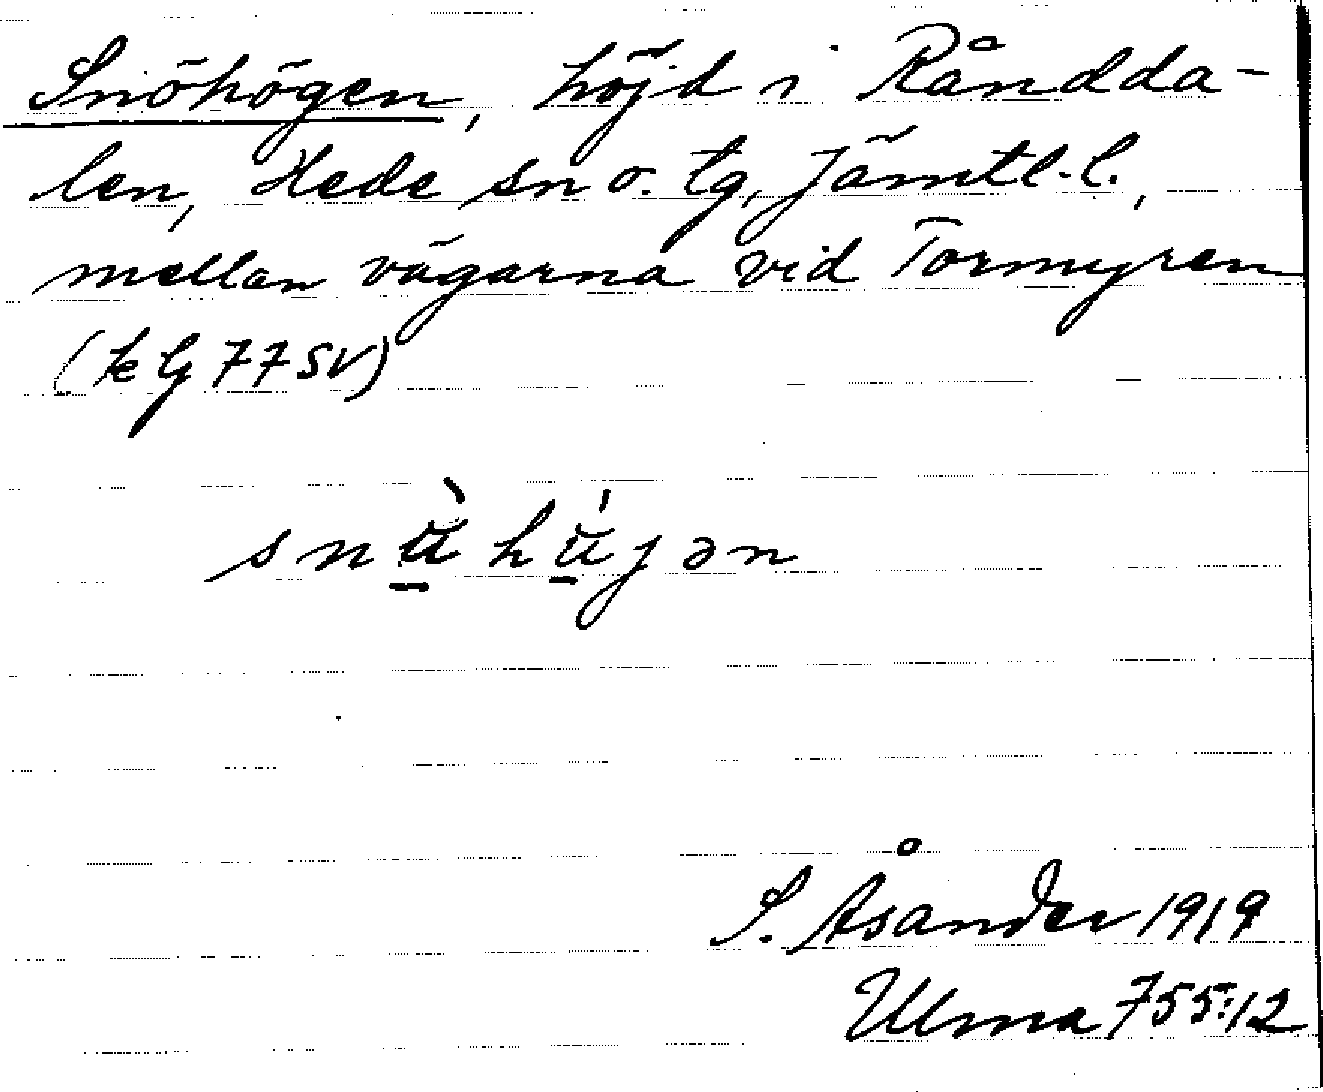 Snöhögen, höjd i Råndda-
len, Hede sn o. tg, Jämtl. l.,
mellan vägarna vid Tormyren
(k Bg 77 SV)
snù̲hú̲jən
S. Åsander 1919
Ulma 755:12